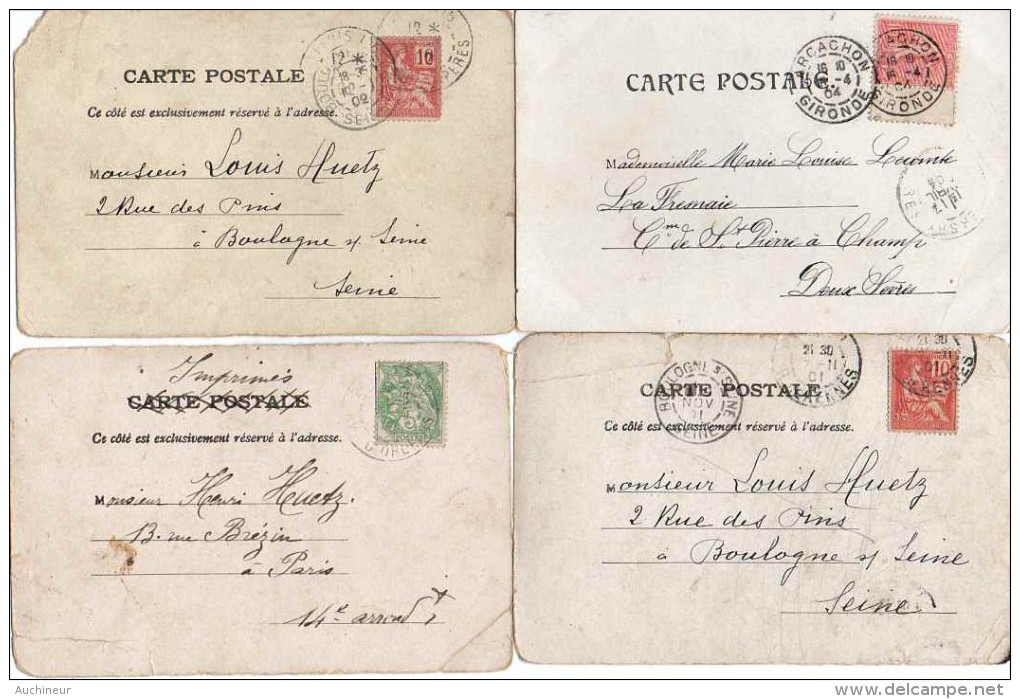 CARTE POSTALE
Ce côté est exclusivement réservé à l'adresse.
Monsieur Louis Huetz
2 Rue des Pins
à Boulogne s/ Seine
Seine
10
CARTE POSTALE
ARCACHON
GIRONDE
16 10
04
ARCACHON
GIRONDE
16 10
Mademoiselle Marie Louise Lecomte
La Fresnaie
Cne de St Pierre à Champ
Deux Sèvres
Imprimés
CARTE POSTALE
Ce côté est exclusivement réservé à l'adresse.
Monsieur Henri Huetz
13. rue Brézin
à Paris
14e arrondt
BOULOGNE S SEINE
NOV
SEINE
21 30
11
01
21 30
10
CARTE POSTALE
Ce côté est exclusivement réservé à l'adresse.
Monsieur Louis Huetz
2 Rue des Pins
à Boulogne s/ Seine
Seine
Auchineur
delcampe.net